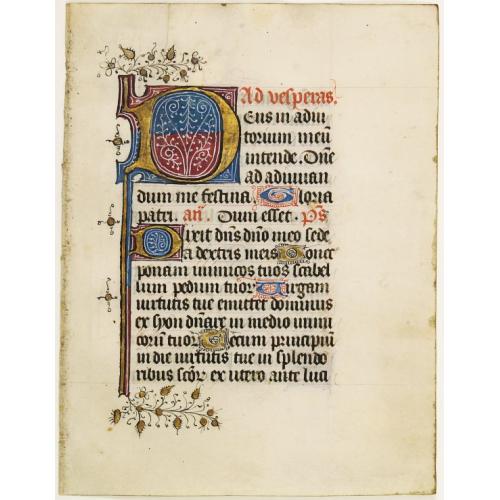 Ad vesperas.
Deus in adiu
torium meū
intende. Dn̄e
ad adiuuan
dum me festina Gloria
patri. an̄. Dum esset. Ps̄
Dixit dn̄s dn̄o meo sede
a dextris meis Donec
ponam inimicos tuos scabel
lum pedum tuor Uirgam
uirtutis tue emittet dominus
ex syon dn̄are in medio inimi
corū tuor Tecum principiū
in die uirtutis tue in splendo
ribus scōr ex utero ante luci